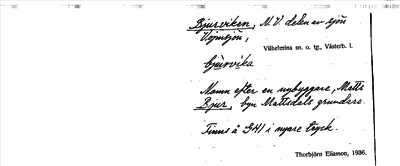 Bjurviken, N.V. delen av sjön
Vojmsjön,
Vilhelmina sn. o. tg., Västerb. l.
bjùrvika
Namn efter en nybyggare, Matts
Bjur, byn Mattsdals grundare.
Finns å GKI i nyare tryck.
Thorbjörn Eliasson, 1936.